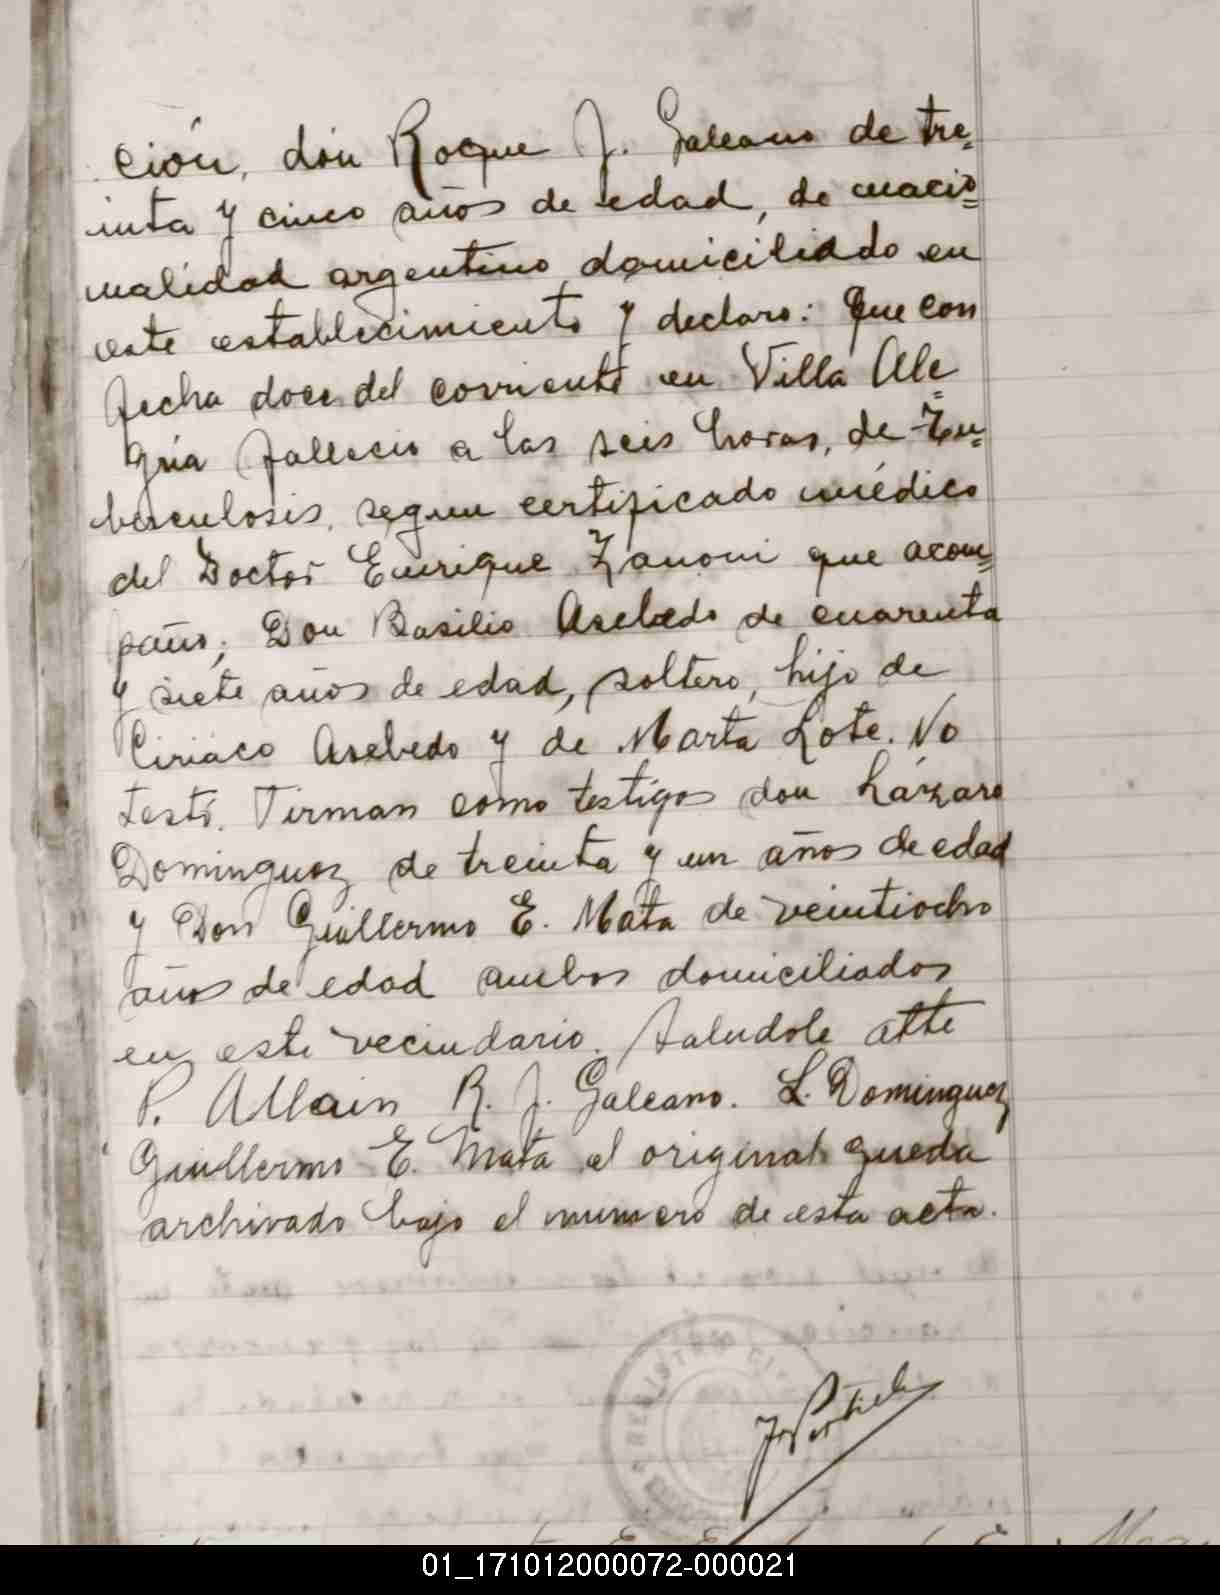 ción, don Roque J. Galeano de tre=
inta y cinco años de edad, de nacio=
nalidad argentino domiciliado en
este establecimiento y declaro: Que con
fecha doce del corriente en Villa Ale=
gria fallecio a las seis horas, de Tu=
berculosis, segun certificado médico
del Doctor Enrique Zanoni que acom=
paño; Don Basilio Asebedo de cuarenta
y siete años de edad, soltero, hijo de
Ciriaco Asebedo y de Marta Lote. No
testó. Firman como testigos don Lázaro
Dominguez de treinta y un años de edad
y Don Guillermo E. Mata de veintiocho
años de edad ambos domiciliados
en este vecindario. Saludole atte
P. Allain R. J. Galeano. L. Dominguez
Guillermo E. Mata el original queda
archivado bajo el numero de esta acta.
REGISTRO CI
01_171012000072-000021